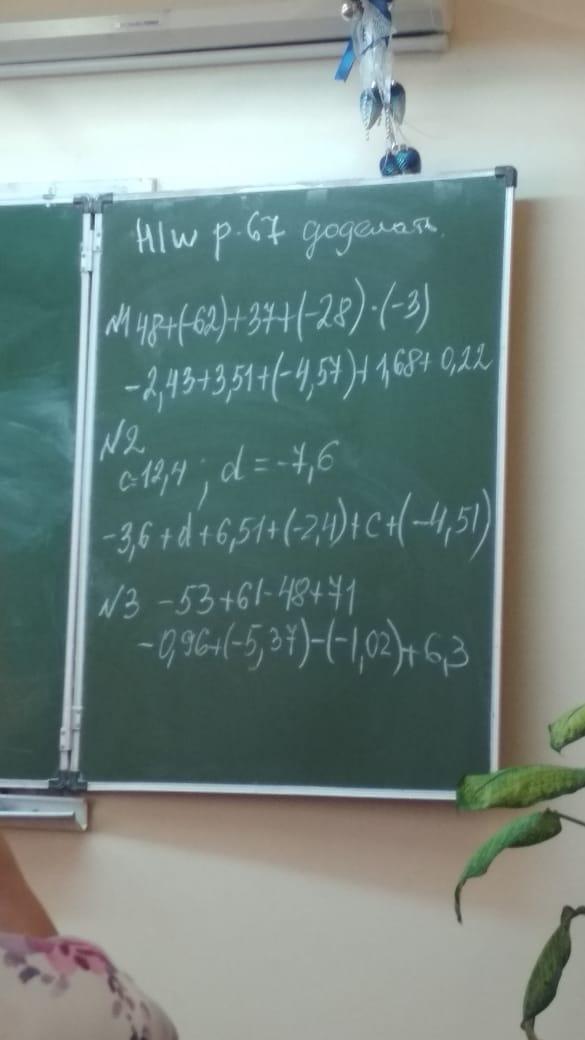 H/w p. 67 доделать.
№1 48+(-62)+37+(-28)·(-3)
-2,43+3,51+(-4,57)+1,68+0,22
№2
c=12,4 ; d=-7,6
-3,6+d+6,51+(-2,4)+c+(-4,51)
№3 -53+61-48+71
-0,96+(-5,37)-(-1,02)+6,3